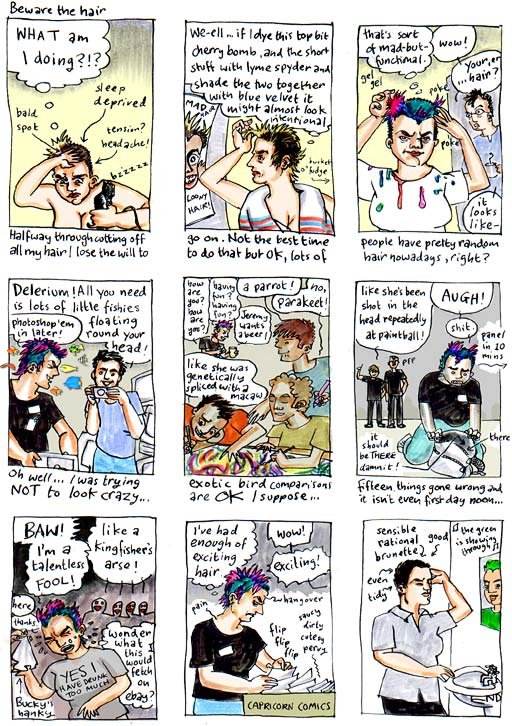 Beware the hair
WHAT am
I doing?!?
sleep
deprived
bald
spot
tension?
headache!
bzzzzz
Halfway through cutting off
all my hair I lose the will to
We-ell... if I dye this top bit
cherry bomb, and the short
stuff with lyme spyder and
shade the two together
with blue velvet it
might almost look
intentional
MAD
LOONY
HAIR!
bucket
o' fudge
go on. Not the best time
to do that but OK, lots of
that's sort
of mad-but-
functional.
wow!
your, er
... hair?
gel
gel
poke
poke
it
looks
like-
people have pretty random
hair nowadays, right?
Delerium! All you need
is lots of little fishies
floating
round your
head!
photoshop 'em
in later!
Oh well... I was trying
NOT to look crazy...
how are
you?
how are
you?
having
fun?
having
fun?
a parrot!
no,
parakeet!
Jeremy
wants
a beer!
like she was
genetically
spliced with a
macaw
exotic bird comparisons
are OK I suppose...
like she's been
shot in the
head repeatedly
at paintball!
AUGH!
shit
panel
in 10
mins
PFF
it
should
be THERE
damnit!
there
fifteen things gone wrong and
it isn't even first day noon...
BAW!
I'm a
talentless
FOOL!
like a
Kingfisher's
arse!
here
thanks
wonder
what
this
would
fetch
on
ebay?
YES I
HAVE DRUNK
TOO MUCH
Bucky's
hanky
I've had
enough of
exciting
hair
wow!
exciting!
pain
hangover
flip
flip
flip
saucy
dirty
cutesy
pervy
CAPRICORN COMICS
sensible
rational
brunette
good
the green
is showing
through
even
tidy